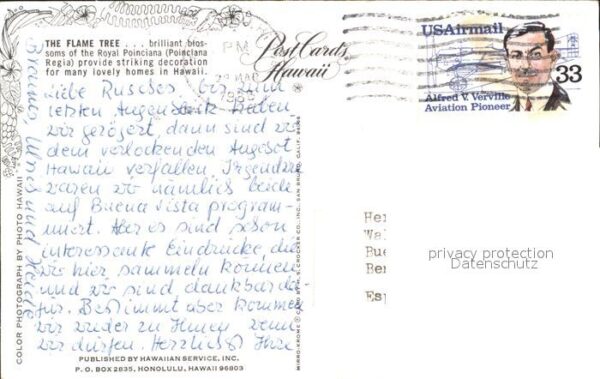 THE FLAME TREE . . . brilliant blos-
soms of the Royal Poinciana (Poinciana
Regia) provide striking decoration
for many lovely homes in Hawaii.
Post Cards Hawaii
PM
USAirmail
33
Alfred V. Verville
Aviation Pioneer
Liebe Rusches, bis zum
letzten Augenblick haben
wir gezögert, dann sind wir
dem verlockenden Angebot
Hawaii verfallen. Irgendwie
waren wir nämlich beide
auf Buena Vista program-
miert. Hier es sind schon
interessante Eindrücke, die
wir hier sammeln können
und wir sind dankbar da
für. Bestimmt aber kommen
wir wieder zu Ihnen, wenn
wir dürfen. Herzlichst Ihre
COLOR PHOTOGRAPH BY PHOTO HAWAII
MIRRO-KROME ® CARD BY H. S. CROCKER CO., INC., SAN BRUNO, CALIF.
PUBLISHED BY HAWAIIAN SERVICE, INC.
P. O. BOX 2835, HONOLULU, HAWAII 96803
He
Wa
Bue
Be
Esp
privacy protection
Datenschutz